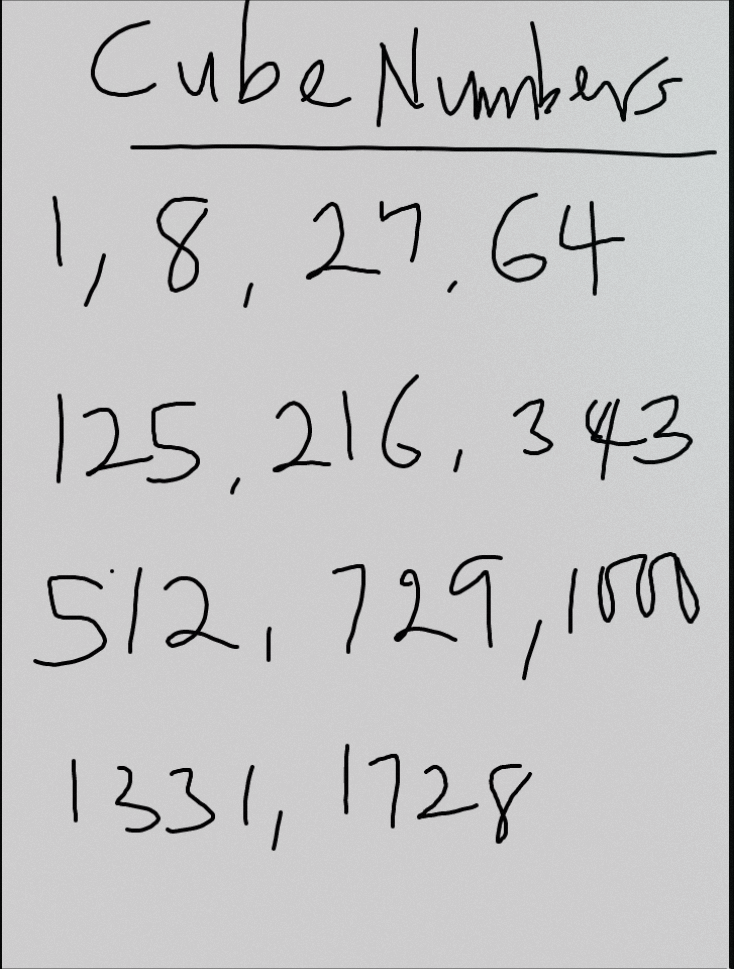 Cube Numbers
1, 8, 27, 64
125, 216, 343
512, 729, 1000
1331, 1728